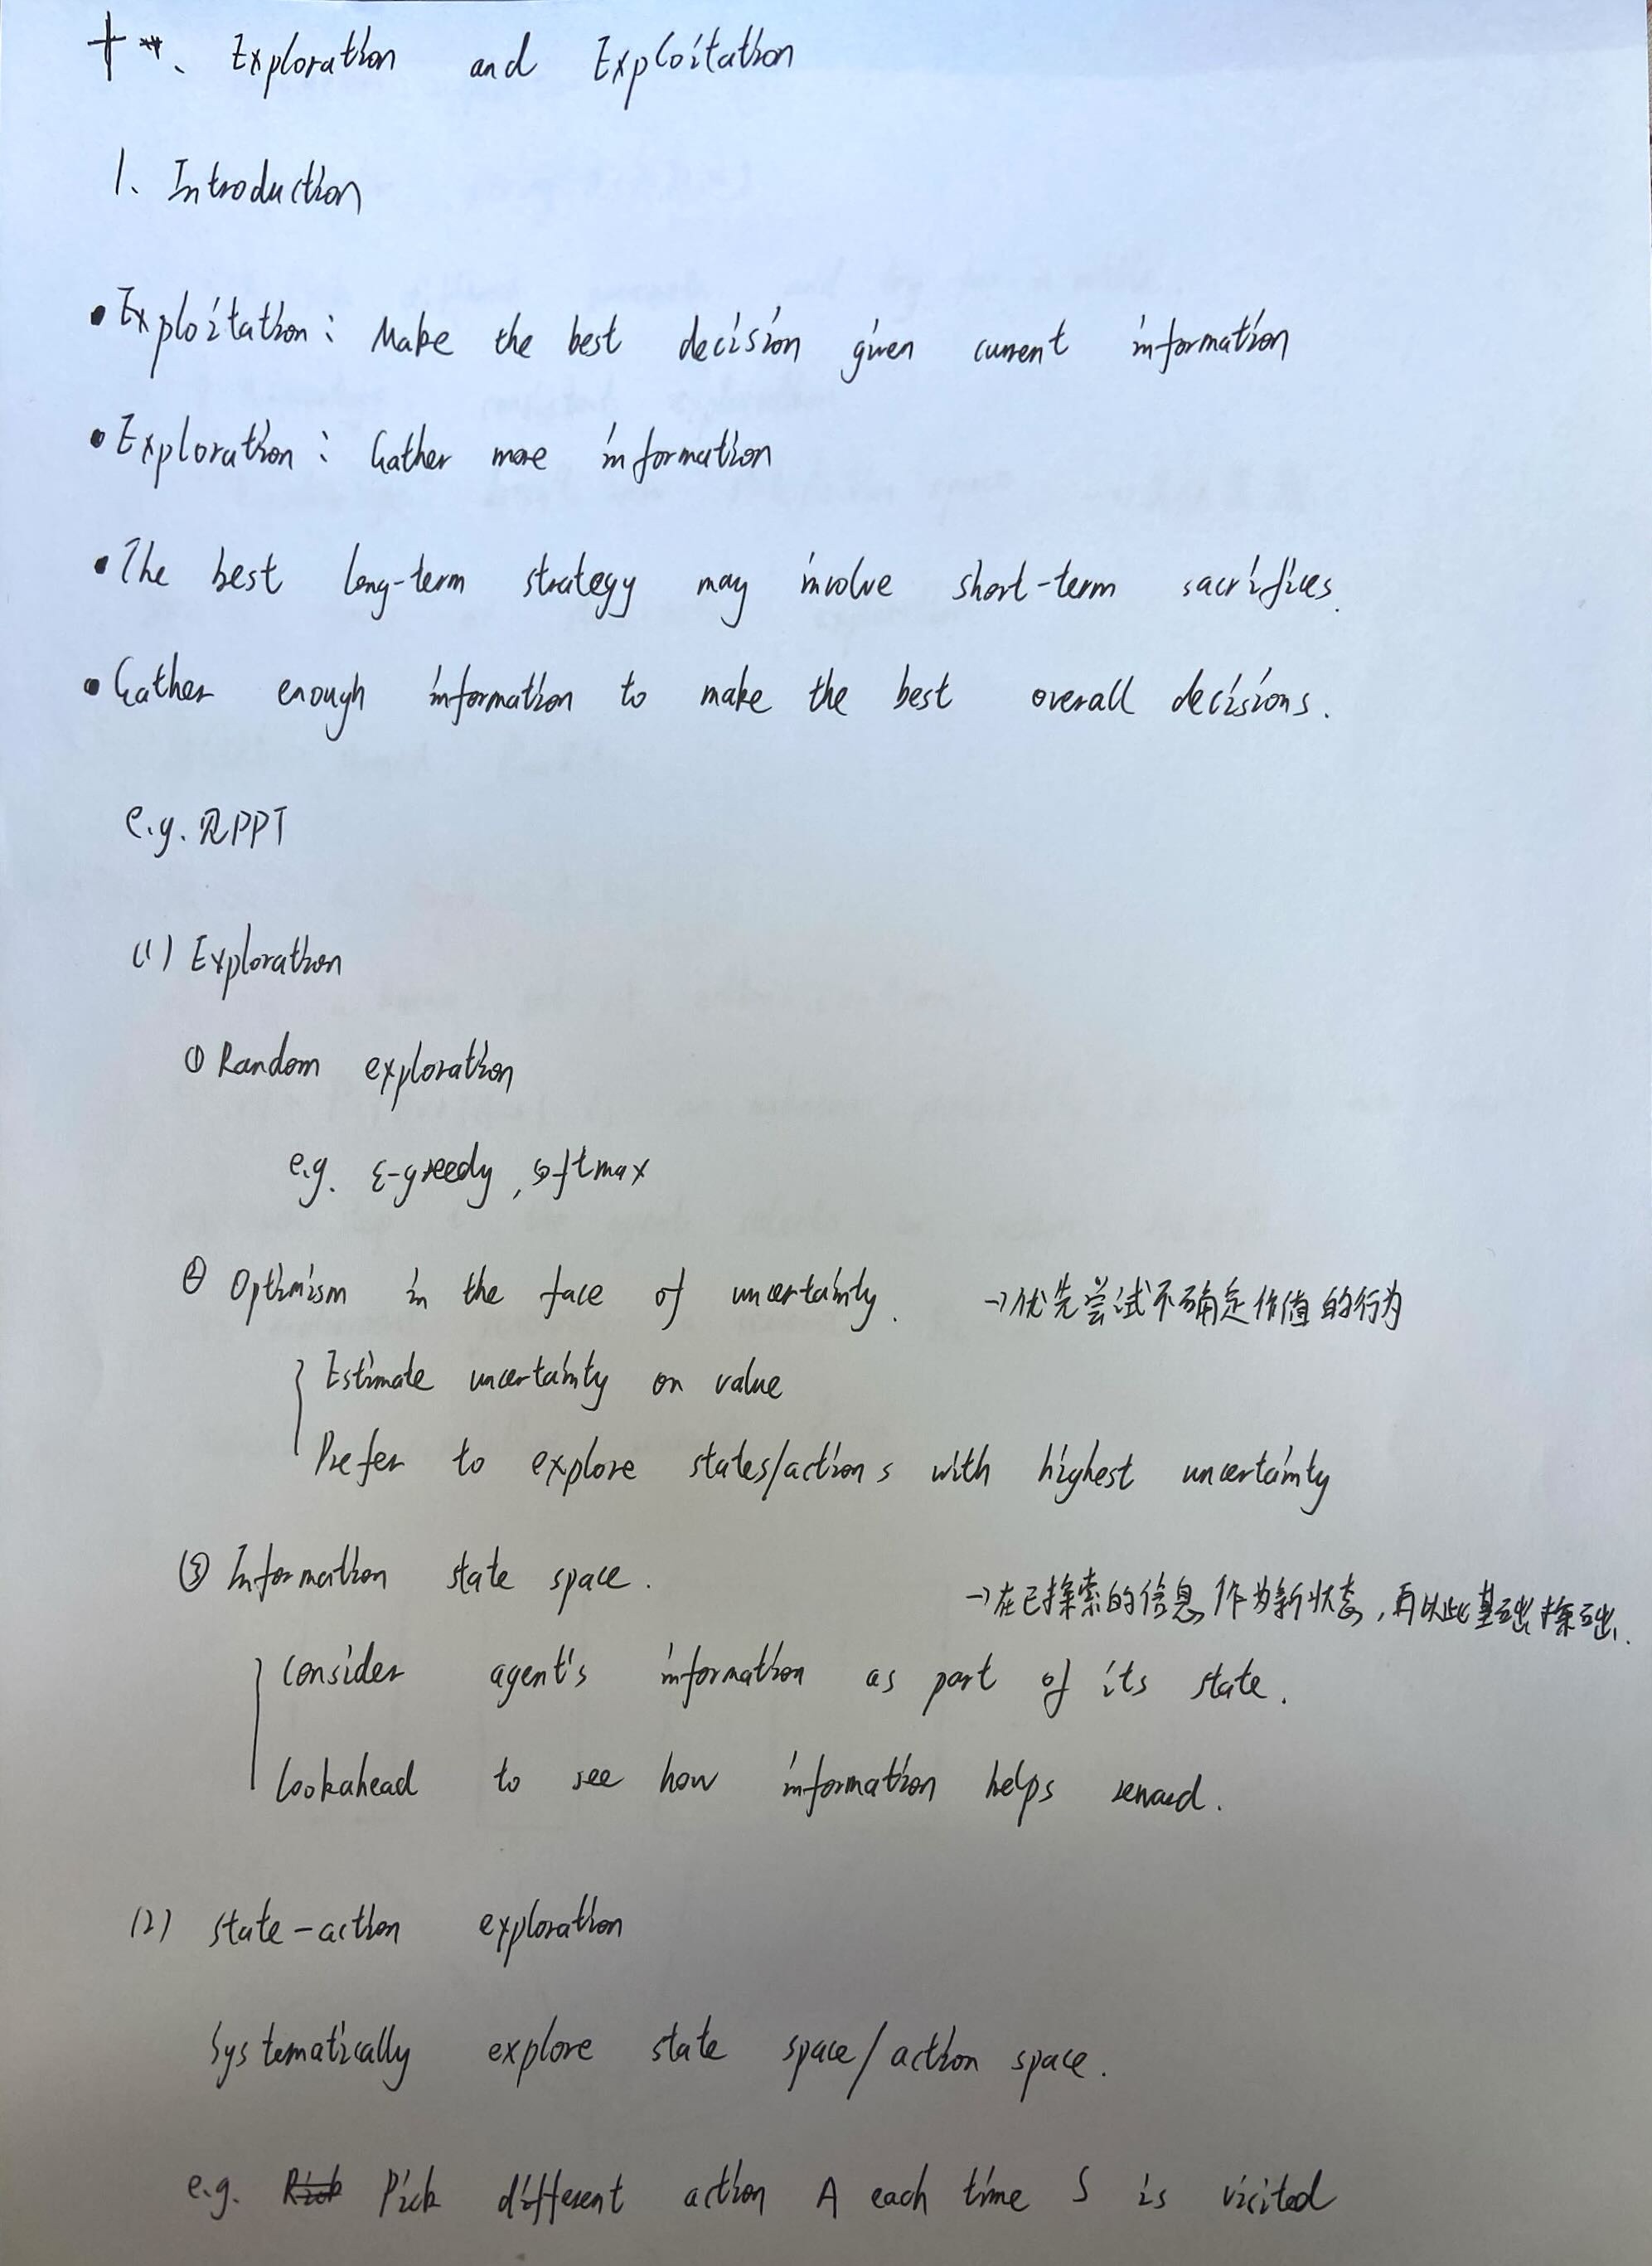 十、 Exploration and Exploitation
1、 Introduction
• Exploitation : Make the best decision given current information
• Exploration : Gather more information
• The best long-term strategy may involve short-term sacrifices.
• Gather enough information to make the best overall decisions.
e.g. 见PPT
(1) Exploration
① Random exploration
e.g. ε-greedy , softmax
② Optimism in the face of uncertainty. →优先尝试不确定价值的行为
Estimate uncertainty on value
Prefer to explore states/actions with highest uncertainty
③ Information state space. →在已探索的信息作为新状态,再以此基础探础.
Consider agent's information as part of its state.
Lookahead to see how information helps reward.
(2) State-action exploration
Systematically explore state space/action space.
e.g. Pick different action A each time S is visited